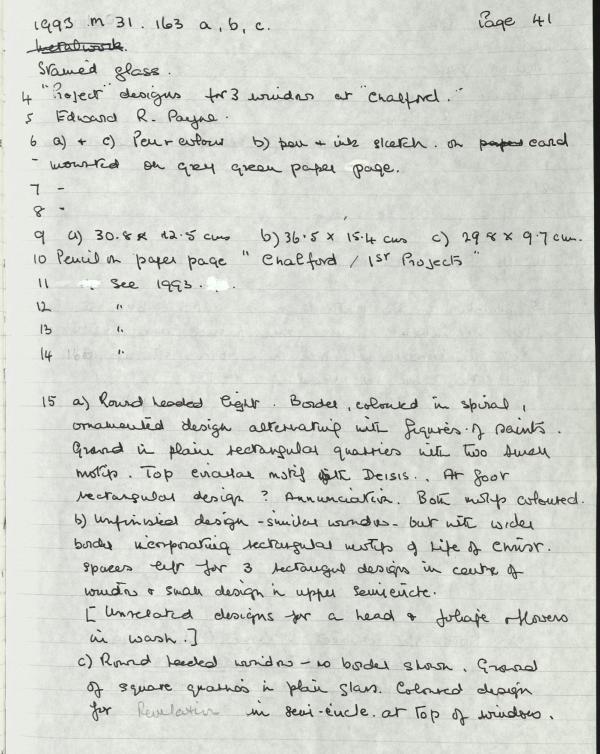 1993 . M 31 . 163 a, b, c. Page 41
Metalwork.
Stained glass.
4 "Project" designs for 3 windows at "Chalford."
5 Edward R. Payne.
6 a) + c) Pen + colour b) pen + ink sketch. on paper card
- mounted on grey green paper page.
7 -
8 -
9 a) 30.8 x 12.5 cms b) 36.5 x 15.4 cms c) 29 8 x 9.7 cm.
10 Pencil on paper page "Chalford / 1st Projects"
11 See 1993.
12 "
13 "
14 "
15 a) Round headed light. Border, coloured in spiral,
ornamented design alternating with figures of saints.
Ground in plain rectangular quarries with two small
motifs. Top circular motif with Deisis.. At foot
rectangular design ? Annunciation. Both motifs coloured.
b) Unfinished design - similar window - but with wider
border incorporating rectangular motifs of Life of Christ.
Spaces left for 3 rectangul designs in centre of
window & small design in upper semicircle.
[ Unrelated designs for a head & foliage + flowers
in wash.]
c) Round headed window - no border shown. Ground
of square quarries in plain glass. Coloured design
for Revelation in semi-circle. at top of window.